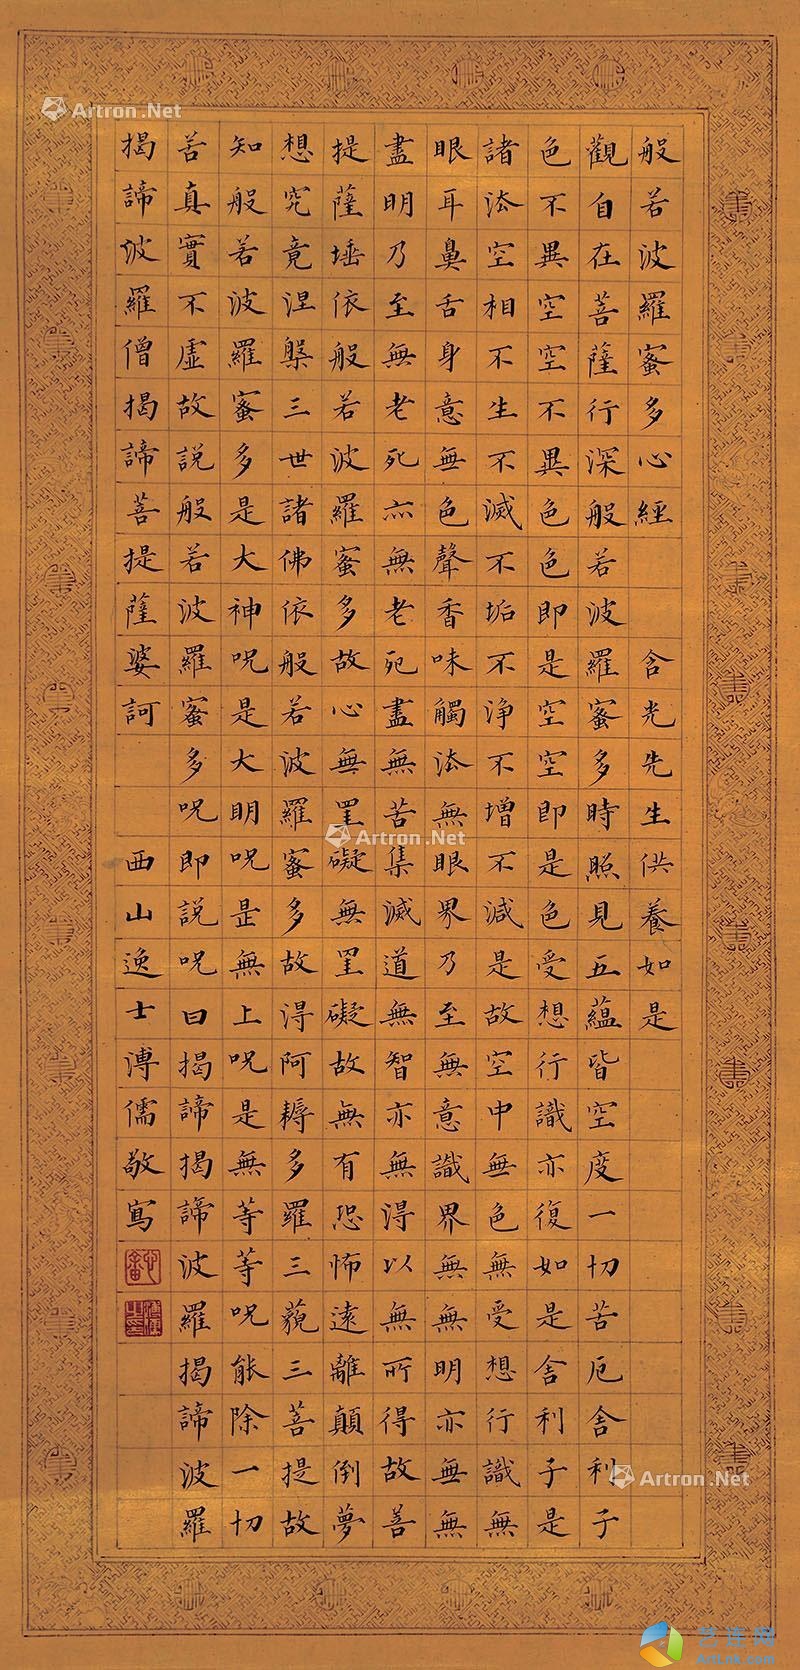 般若波羅蜜多心經　含光先生供養如是
觀自在菩薩行深般若波羅蜜多時照見五蘊皆空度一切苦厄舍利子
色不異空空不異色色即是空空即是色受想行識亦復如是舍利子是
諸法空相不生不滅不垢不淨不增不減是故空中無色無受想行識無
眼耳鼻舌身意無色聲香味觸法無眼界乃至無意識界無無明亦無無
盡明乃至無老死亦無老死盡無苦集滅道無智亦無得以無所得故菩
提薩埵依般若波羅蜜多故心無罣礙無罣礙故無有恐怖遠離顛倒夢
想究竟涅槃三世諸佛依般若波羅蜜多故得阿耨多羅三藐三菩提故
知般若波羅蜜多是大神呪是大明呪是無上呪是無等等呪能除一切
苦真實不虛故說般若波羅蜜多呪即說呪曰揭諦揭諦波羅揭諦波羅
揭諦波羅僧揭諦菩提薩婆訶　西山逸士溥儒敬寫
Artron.Net
Artron.Net
Artron.Net
艺连网
ArtLink.com